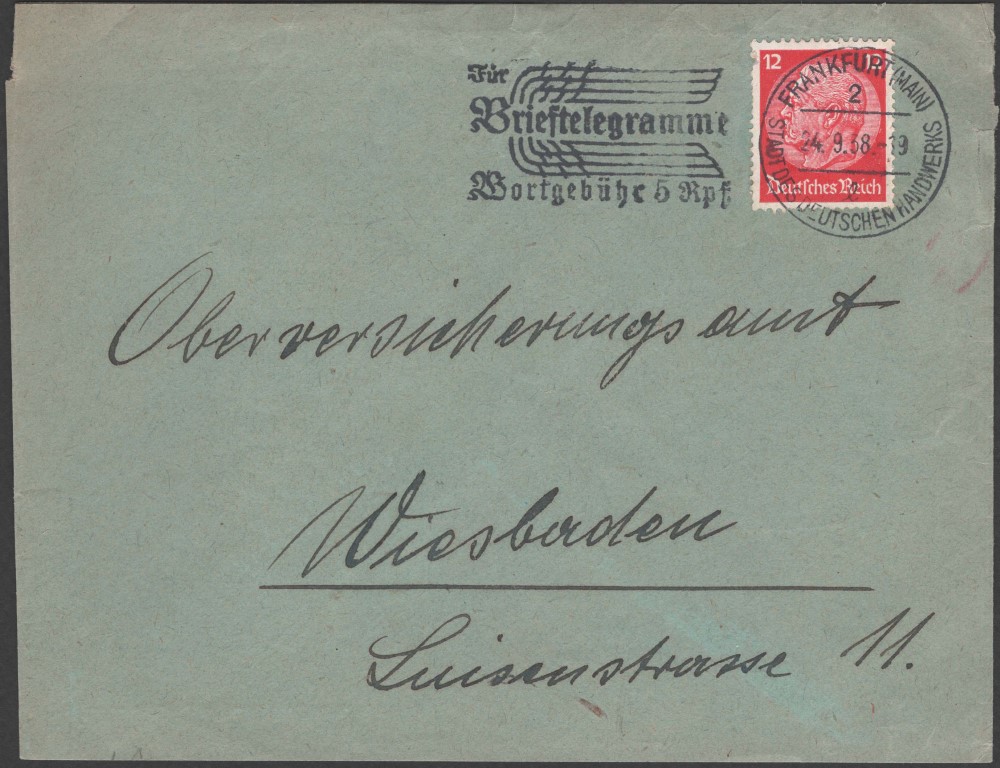 Für
Brieftelegramme
Wortgebühr 5 Rpf
12 12
Deutsches Reich
FRANKFURT (MAIN)
2
24. 9. 38.-19
STADT DES DEUTSCHEN HANDWERKS
Oberversicherungsamt
Wiesbaden
Luisenstrasse 11.